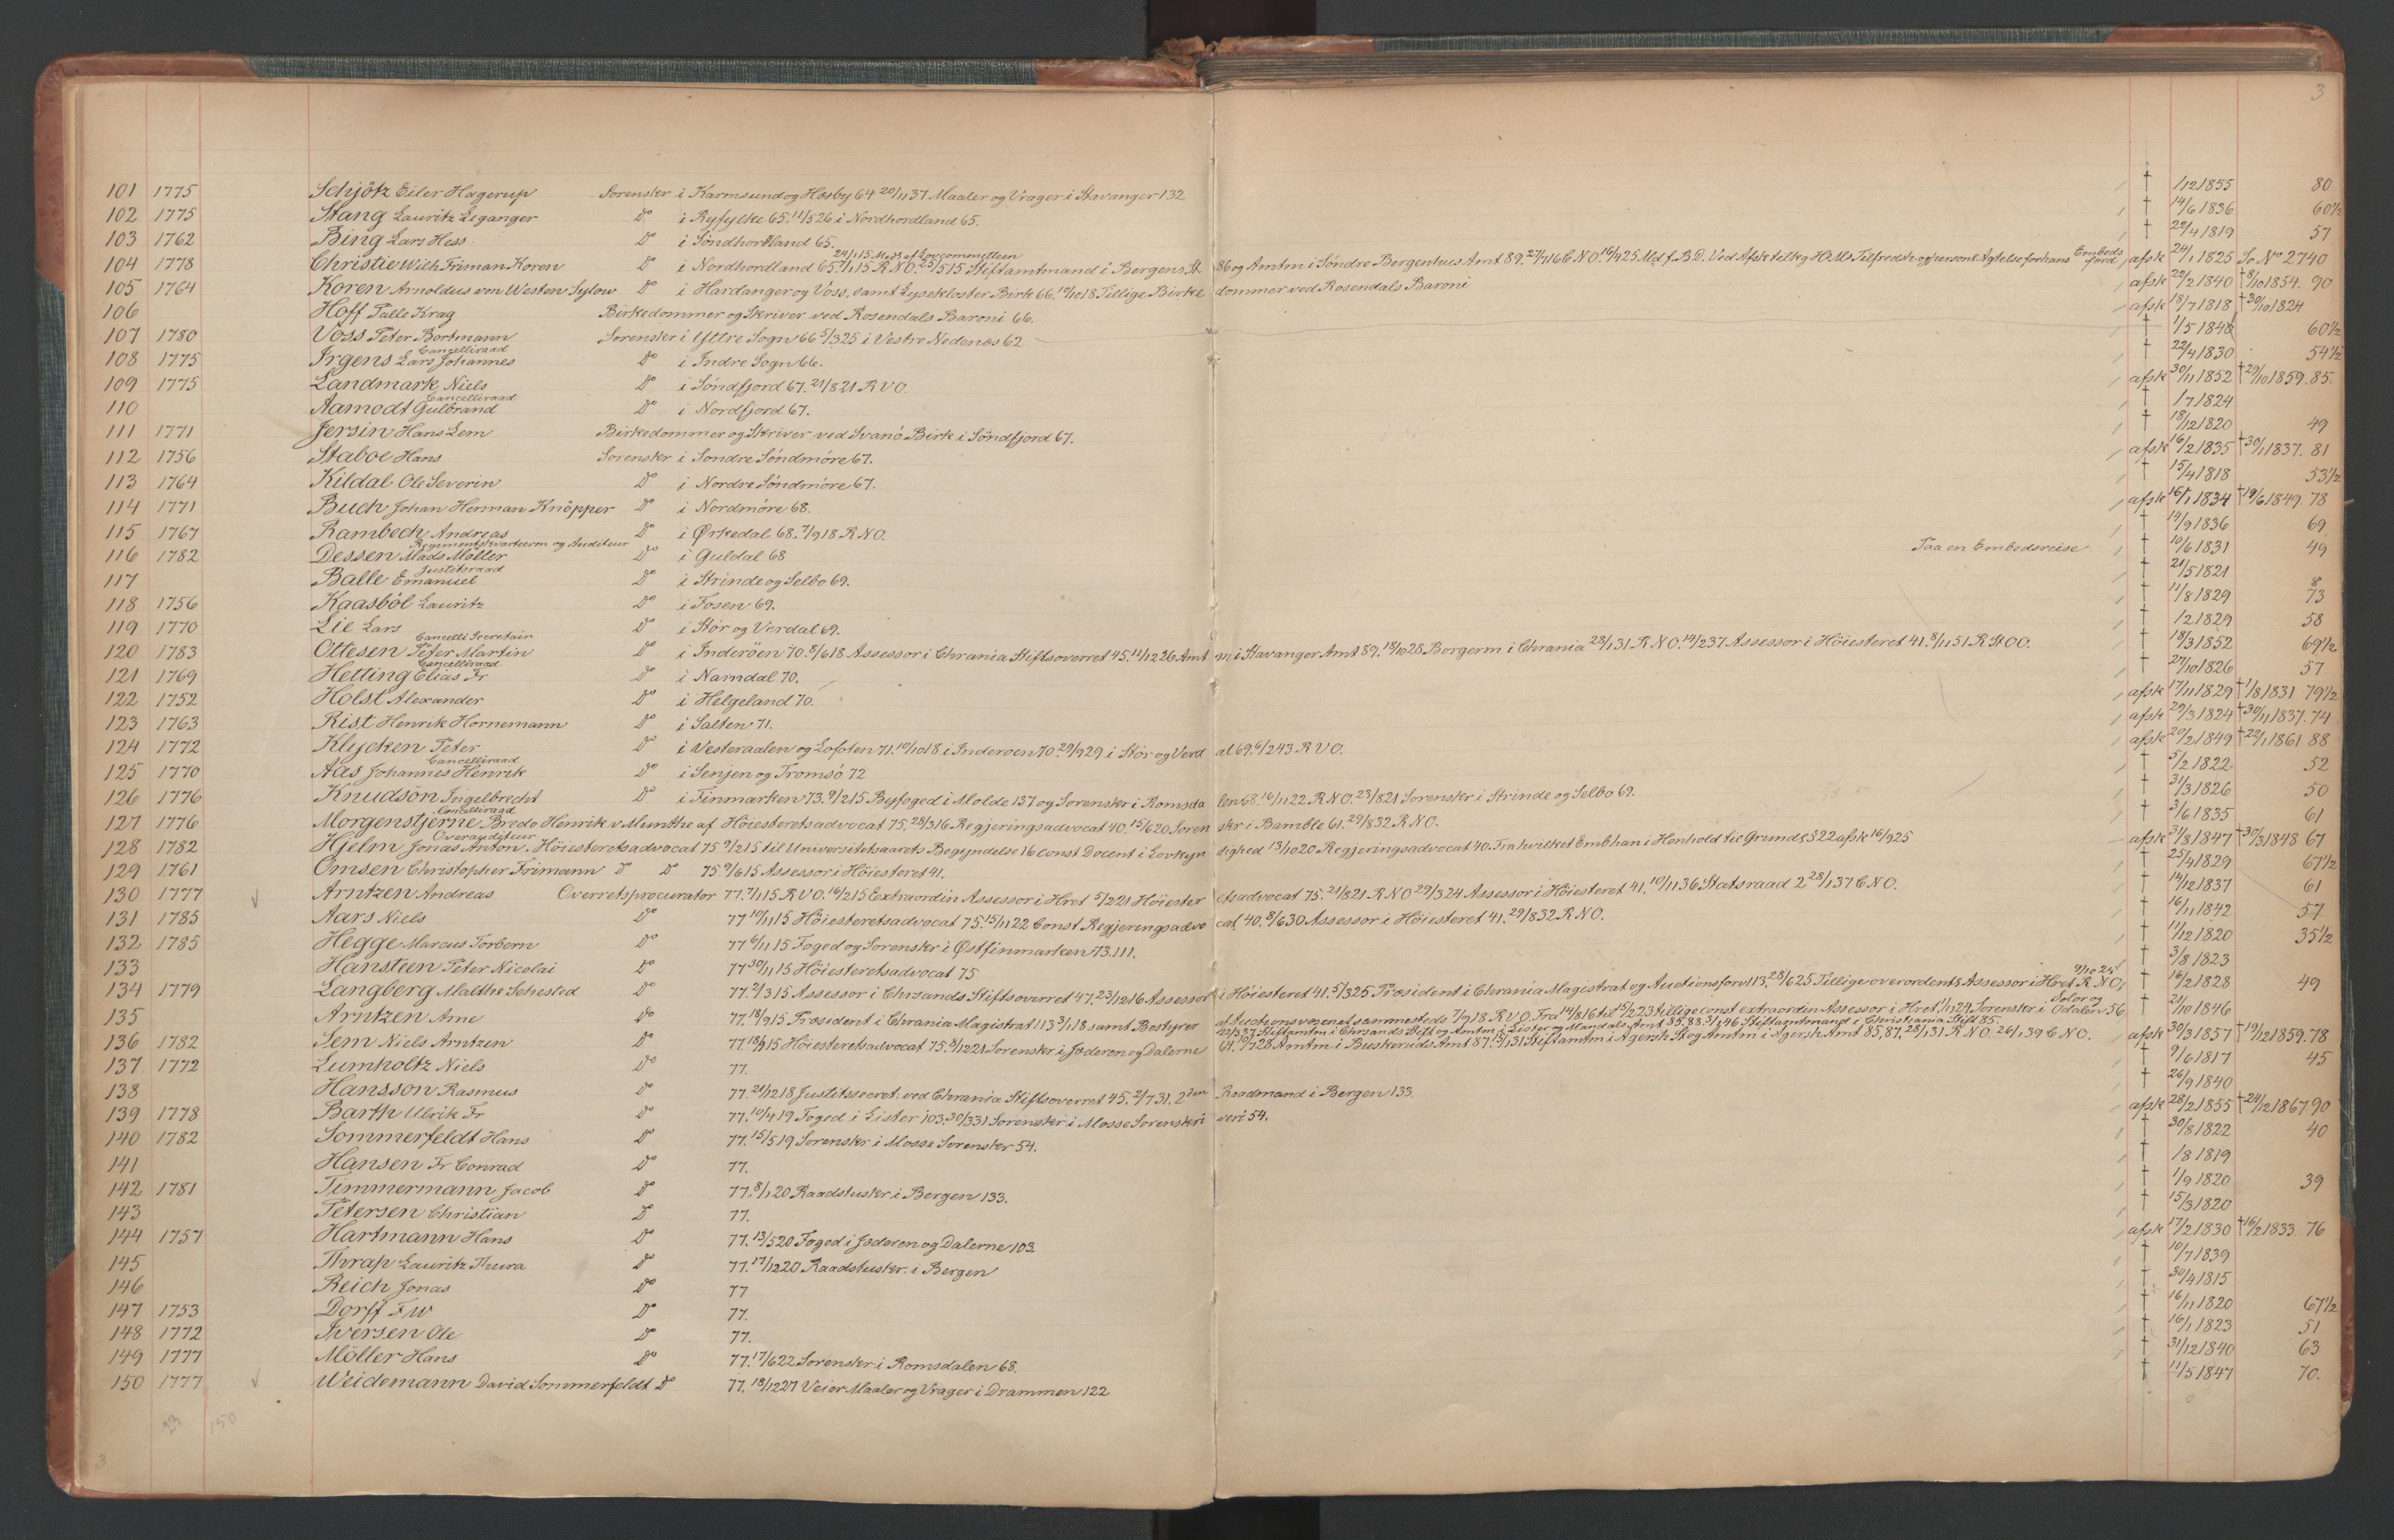 3
101 1775 Schjötz Eiler Hagerup Sorenskr i Karmsund og Hesby 64 20/11 37 Maaler og Vrager i Stavanger 132 † 1/12 1855 80
102 1775 Stang Lauritz Leganger Do i Ryfylke 65. 11/5 26 i Nordhordland 65. † 14/6 1836 60½
103 1762 Bing Lars Hess Do i Söndhordland 65. † 22/4 1819 57
24/11 15 Medl af Lovcommitteen
104 1778 Christie Wilh Friman Koren Do i Nordhordland 65. 7/1 15 R N O. 25/5 15 Stiftamtmand i Bergens St 86 og Amtm i Söndre Bergenhus Amt 89. 27/7 16 C N O. 16/4 25 Md f. B D. Ved Afsk tilkg H Ms Tilfredsh og persont Agtelse for hans Embeds afsk 24/1 1825 Se No 2740
105 1764 Koren Arnoldus von Westen Sylow Do i Hardanger og Voss, samt Lysekloster Birk 66. 19/10 18 Tillige Birkedommer ved Rosendals Baroni afsk 22/2 1840 † 8/10 1854. 90
106 Hoff Palle Krag Birkedommer og Skriver ved Rosendals Baroni 66. afsk 18/7 1818 † 30/10 1824
107 1780 Voss Peter Bortmann Sorenskr i Yttre Sogn 66 5/3 25 i Vestre Nedenæs 62 † 1/5 1848 60½
Cancelliraad
108 1775 Irgens Lars Johannes Do i Indre Sogn 66. † 22/4 1830 54½
109 1775 Landmark Niels Do i Söndfjord 67. 21/8 21 R V O. afsk 30/11 1852 † 29/10 1859. 85.
Cancelliraad
110 Aamodt Gulbrand Do i Nordfjord 67. † 1/7 1824
111 1771 Jersin Hans Lem Birkedommer og Skriver ved Svanö Birk i Söndfjord 67. † 18/12 1820 49
112 1756 Staboe Hans Sorenskr i Söndre Söndmöre 67. afsk 16/2 1835 † 30/1 1837. 81
113 1764 Kildal Ole Severin Do i Nordre Söndmöre 67. † 15/4 1818 53½
114 1771 Buch Johan Herman Knöpper Do i Nordmöre 68. afsk 16/1 1834 † 19/6 1849. 78
115 1767 Rambech Andreas Do i Ørkedal 68. 7/9 18 R N O. † 14/9 1836 69
Regimentskvarterm og Auditeur
116 1782 Dessen Mads Möller Do i Guldal 68 Paa en Embedsreise † 10/6 1831 49
Justitsraad
117 Balle Emanuel Do i Strinde og Selbo 69. † 21/5 1821
118 1756 Kaasböl Lauritz Do i Fosen 69. † 11/8 1829 73
119 1770 Lie Lars Do i Stör og Verdal 69. † 12 1829 58
Cancelli Secretair
120 1783 Ottesen Peter Martin Do i Inderöen 70. 8/6 18 Assessor i Chrania Stiftsoverret 45. 11/12 26 Amtm i Stavanger Amt 89. 18/10 28 Borgerm i Chrania 28/1 31 R N O. 14/2 37 Assessor i Höiesteret 41. 8/11 51 R St O O. † 18/3 1852 69½
Cancelliraad
121 1769 Hetting Elias Fr Do i Namdal 70. † 27/10 1826 57
122 1752 Holst Alexander Do i Helgeland 70. afsk 17/11 1829 † 1/8 1831 79½
123 1763 Rist Henrik Hornemann Do i Salten 71. afsk 29/3 1824 † 30/11 1837. 74
124 1772 Klycken Peter Do i Vesteraalen og Lofoten 71. 19/10 18 i Inderöen 70 29/9 29 i Stör og Verdal 69. 6/2 43 R V O. afsk 20/2 1849 † 22/1 1861 88
Cancelliraad
125 1770 Aas Johannes Henrik Do i Senjen og Tromsö 72 † 5/2 1822 52
126 1776 Knudsön Ingelbrecht Do i Finmarken 73. 9/2 15 Byfoged i Molde 137 og Sorenskr i Romsdalen 68. 16/11 22 R N O. 23/8 21 Sorenskr i Strinde og Selbo 69. † 31/3 1826 50
Cancelliraad
127 1776 Morgenstjerne Bredo Henrik v Munthe af Höiesteretsadvocat 75. 28/3 16 Regjeringsadvocat 40. 15/6 20 Sorenskr i Bamble 61. 29/8 32 R N O. † 3/6 1835 61
Overauditeur
128 1782 Hjelm Jonas Anton. Höiesteretsadvocat 75 9/2 15 til Universitetsaarets Begyndelse 16 const Docent i Lovkyndighed 13/10 20 Regjeringsadvocat 40. Fra hvilket Emb han i Henhold til Grundl § 22 afsk 16/9 25 afsk 31/8 1847 † 30/3 1848 67
129 1761 Omsen Christopher Frimann Do Do 75. 9/6 15 Assessor i Höiesteret 41. † 25/4 1829 67½
130 1777 Arntzen Andreas Overretsprocurator 77. 7/1 15 R V O. 16/2 15 Extraordin Assessor i Hret 5/2 21 Höiesteretsadvocat 75. 21/8 21 R N O 29/3 24 Assessor i Höiesteret 41. 10/11 36 Statsraad 2 28/1 37 C N O. † 14/12 1837 61
131 1785 Aars Niels Do 77 10/11 15 Höiesteretsadvocat 75. 15/11 22 Const Regjeringsadvocat 40. 8/6 30 Assessor i Höiesteret 41. 29/8 32 R N O. † 16/11 1842 57
132 1785 Hegge Marcus Torbern Do 77 6/11 15 Foged og Sorenskr i Østfinmarken 73.111. † 11/12 1820 35½
133 Hansteen Peter Nicolai Do 77 30/11 15 Höiesteretsadvocat 75 † 3/8 1823
9/10 25
134 1779 Langberg Malthe Sehested Do 77. 2/3 15 Assessor i Chrsands Stiftsoverret 47. 23/12 16 Assessor i Höiesteret 41. 5/3 25 Præsident i Chrania Magistrat og Auctionsforv 113. 28/6 25 Tillige overordentl Assessor i Hret R N O † 16/2 1828 49
Solor og
135 Arntzen Arne Do 77. 18/9 15 Præsident i Chrania Magistrat 113 3/1 18 samt Bestyrer af Auctionsvæsenet sammesteds 7/9 18 R V O. Fra 14/8 16 til 15/2 23 tillige const extraordin Assessor i Hret 1/11 24 Sorenskr i Odalen 56 † 21/10 1846
22/3 37 Stiftamtm i Chrsands Stift og Amtm i Lister og Mandals Amt 35,88. 3/1 46 Stiftamtmand i Christiania Stift 85.
136 1782 Sem Niels Arntzen Do 77. 18/9 15 Höiesteretsadvocat 75. 8/12 21 Sorenskr i Jæderen og Dalerne 64. 10/7 28 Amtm i Buskeruds Amt 87. 13/1 31 Stiftamtm i Agersh St og Amtm i Agersh Amt 85,87. 28/1 31 R N O. 26/1 39 C N O. afsk 30/3 1857 † 19/12 1859. 78
137 1772 Lumholtz Niels Do 77. † 9/6 1817 45
138 Hansson Rasmus Do 77. 21/12 18 Justitssecret. ved Chrania Stiftsoverret 45. 2/7 31. 2den Raadmand i Bergen 133. † 26/9 1840
139 1778 Barth Ulrik Fr Do 77. 19/4 19 Foged i Lister 103. 30/3 31 Sorenskr i Mosse Sorenskriveri 54. afsk 28/2 1855 † 24/12 1867 90
140 1782 Sommerfeldt Hans Do 77. 15/5 19 Sorenskr i Mosse Sorenskr 54. † 30/8 1822 40
141 Hansen Fr Conrad Do 77. † 1/8 1819
142 1781 Timmermann Jacob Do 77. 8/1 20 Raadstuskr i Bergen 133. † 1/9 1820 39
143 Petersen Christian Do 77. † 15/3 1820
144 1757 Hartmann Hans Do 77. 13/5 20 Foged i Jæderen og Dalerne 103 afsk 17/2 1830 † 16/2 1833. 76
145 Thrap Lauritz Thura Do 77. 17/12 20 Raadstuskr. i Bergen † 10/7 1839
146 Reich Jonas Do 77 † 30/4 1815
147 1753 Dorff F W Do 77. † 16/11 1820 67½
148 1772 Iversen Ole Do 77. † 16/1 1823 51
149 1777 Möller Hans Do 77. 17/6 22 Sorenskr i Romsdalen 68. † 31/12 1840 63
150 1777 Weidemann David Sommerfeldt Do 77. 18/12 27 Veier Maaler og Vrager i Drammen 122 † 11/5 1847 70.
23 150
3